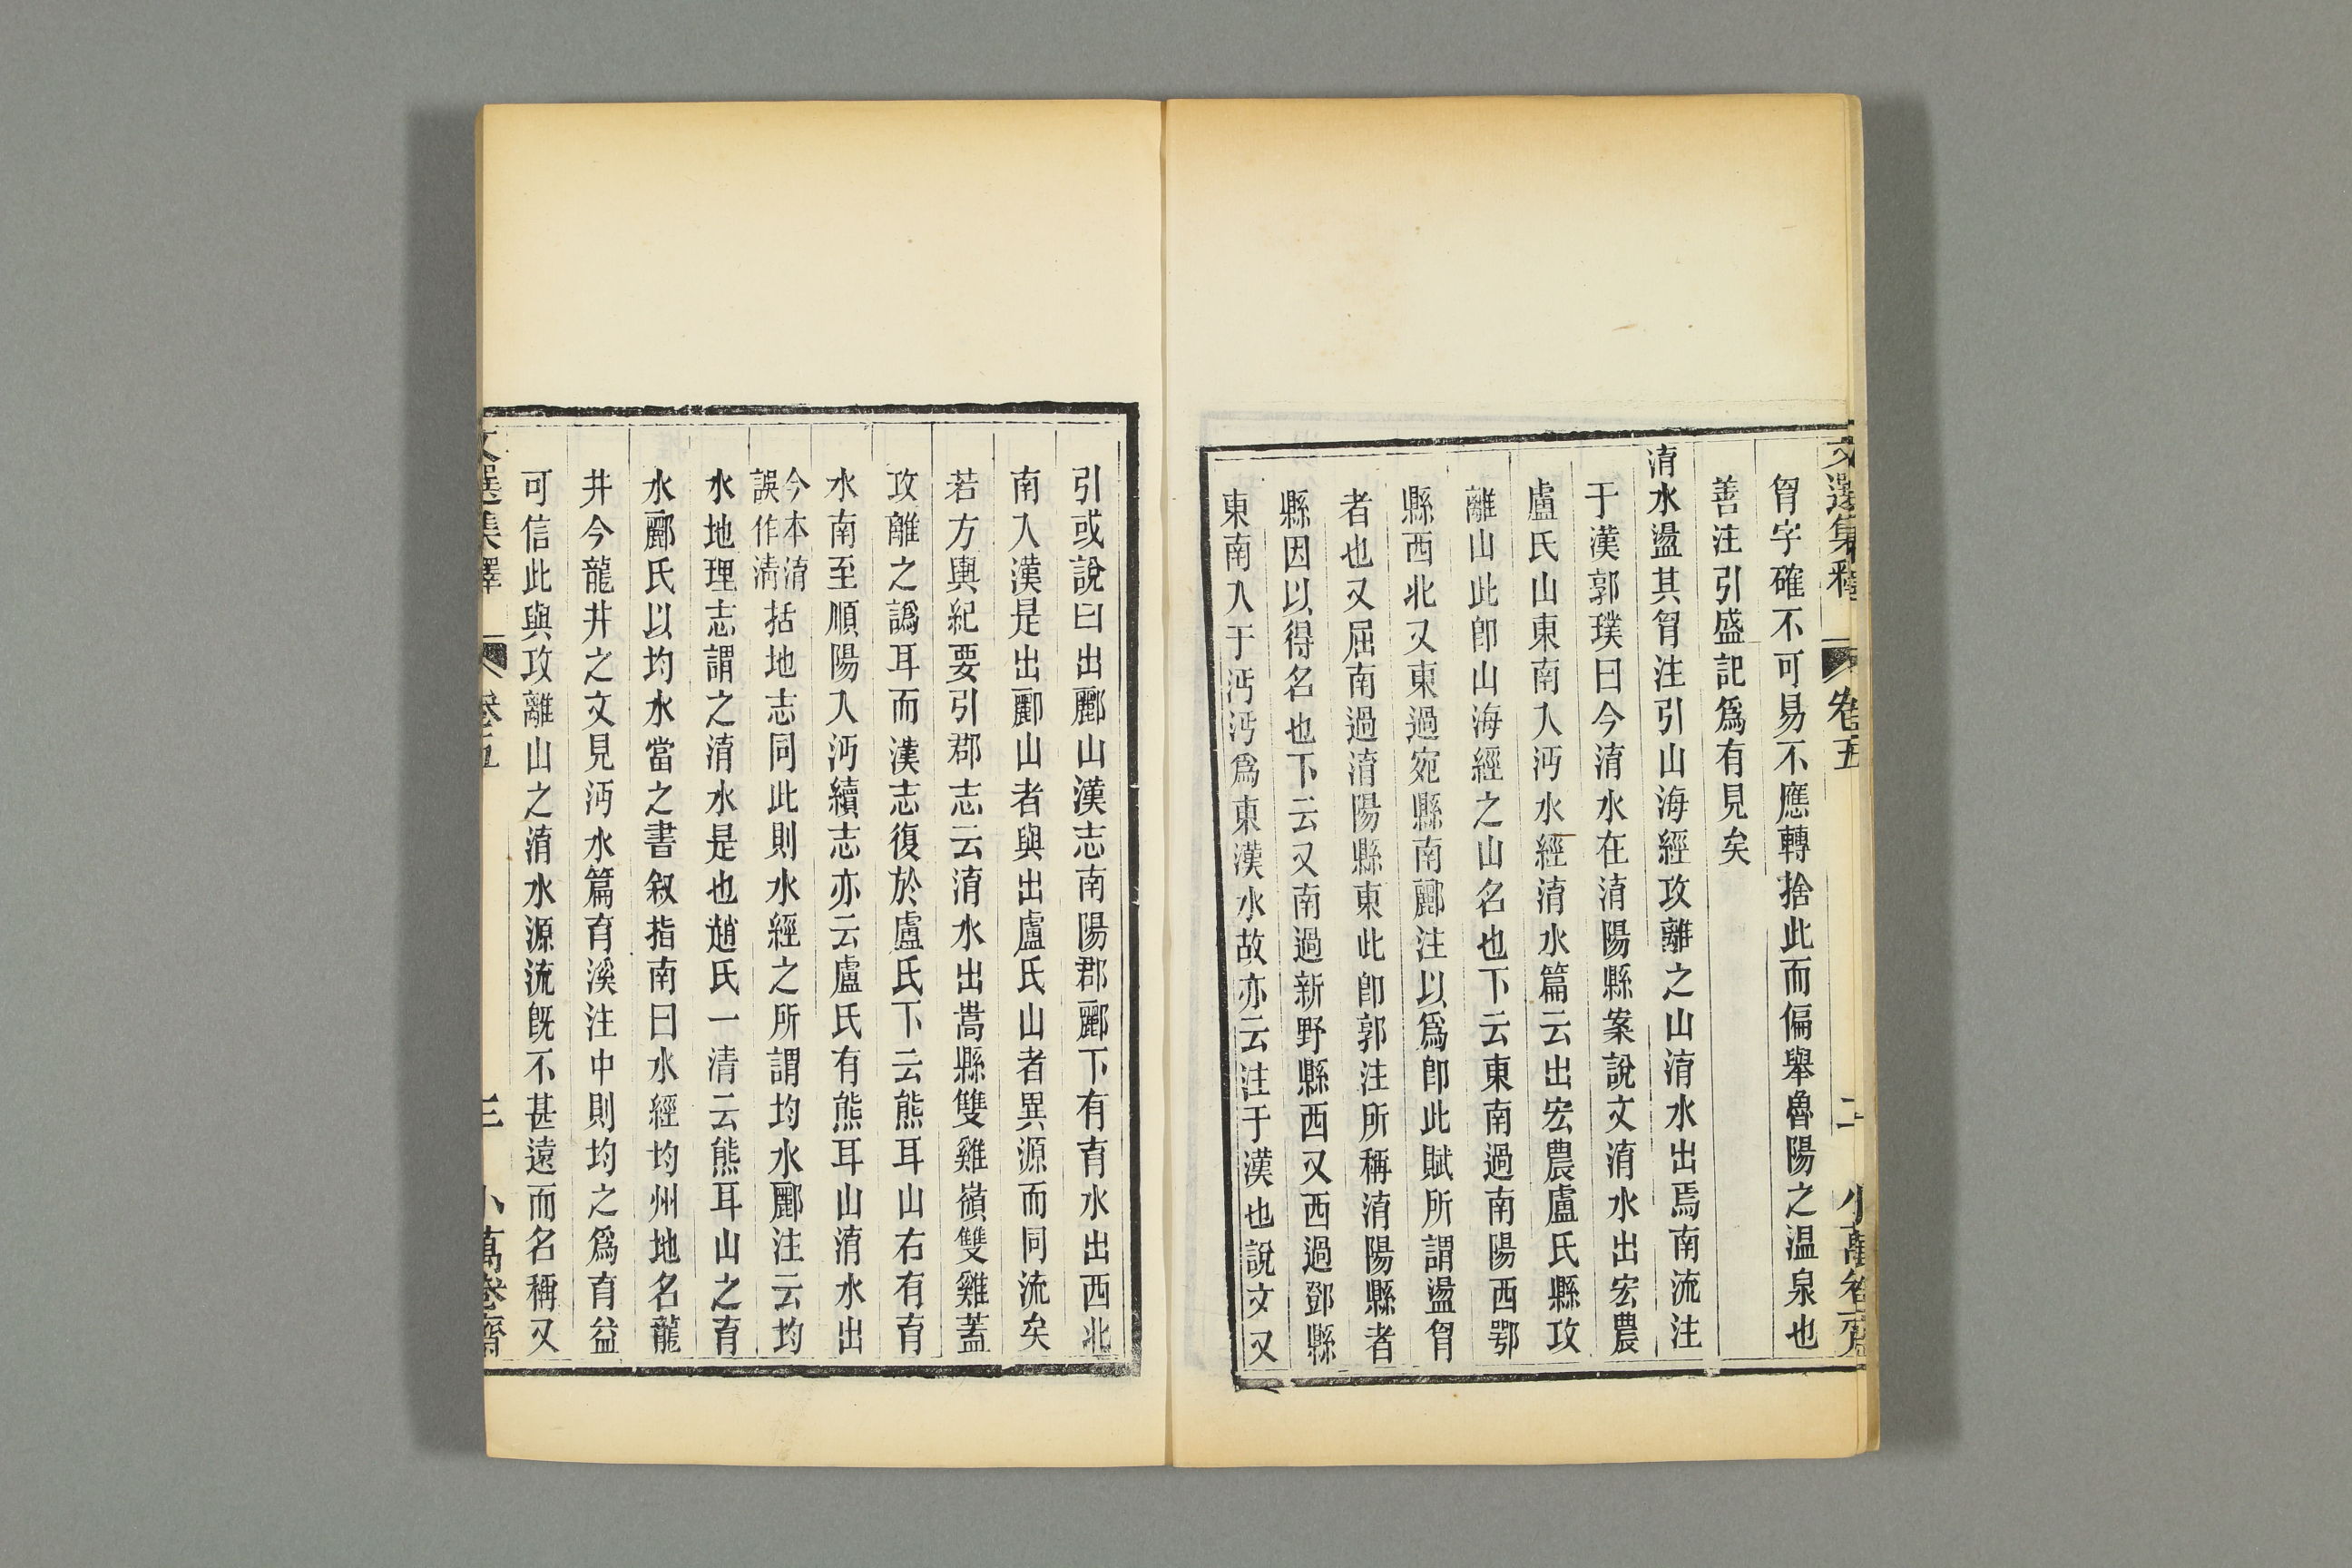 文選集釋 卷五 二 小萬卷齋
胷字確不可易不應轉捨此而偏舉魯陽之温泉也
善注引盛記爲有見矣
淯水盪其胷注引山海經攻離之山淯水出焉南流注
于漢郭璞曰今淯水在淯陽縣案說文淯水出宏農
盧氏山東南入沔水經淯水篇云出宏農盧氏縣攻
離山此卽山海經之山名也下云東南過南陽西鄂
縣西北又東過宛縣南酈注以爲卽此賦所謂盪胷
者也又屈南過淯陽縣東此卽郭注所稱淯陽縣者
縣因以得名也下云又南過新野縣西又西過鄧縣
東南入于沔沔爲東漢水故亦云注于漢也說文又
引或說曰出酈山漢志南陽郡酈下有育水出西北
南入漢是出酈山者與出盧氏山者異源而同流矣
若方輿紀要引郡志云淯水出嵩縣雙雞嶺雙雞蓋
攻離之譌耳而漢志復於盧氏下云熊耳山右有育
水南至順陽入沔續志亦云盧氏有熊耳山淯水出
今本淯
誤作淸
括地志同此則水經之所謂均水酈注云均
水地理志謂之淯水是也趙氏一清云熊耳山之育
水酈氏以均水當之書叙指南曰水經均州地名龍
井今龍井之文見沔水篇育溪注中則均之爲育益
可信此與攻離山之淯水源流旣不甚遠而名稱又
文選集釋 卷五 三 小萬卷齋